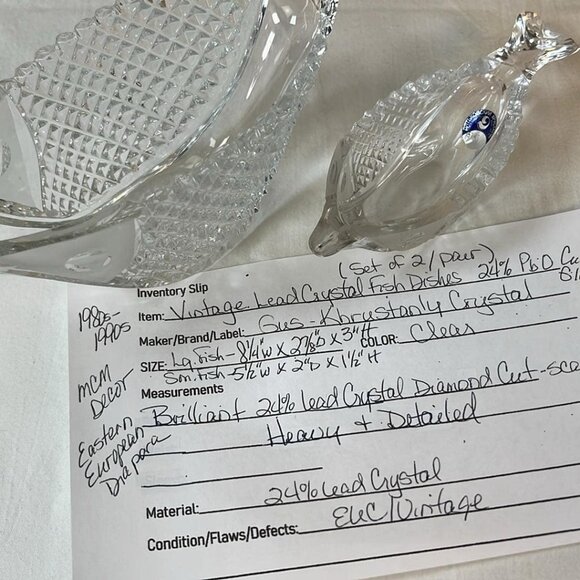 (Set of 2/pair)
Inventory Slip
Item: Vintage Lead Crystal Fish Dishes 24% PbO Cu
Maker/Brand/Label: Gus-Khrustanly Crystal
SIZE: Lg. Fish - 8 1/4" W X 2 7/8" D X 3" H COLOR: Clear
Sm. Fish - 5 1/2" W X 2" D X 1 1/2" H
Measurements
Brilliant 24% Lead Crystal Diamond Cut-sca
Heavy + Detailed
Material: 24% Lead Crystal
Condition/Flaws/Defects: EUC/Vintage
1980s-
1990s
MCM
Decor
Eastern
European
Diapara